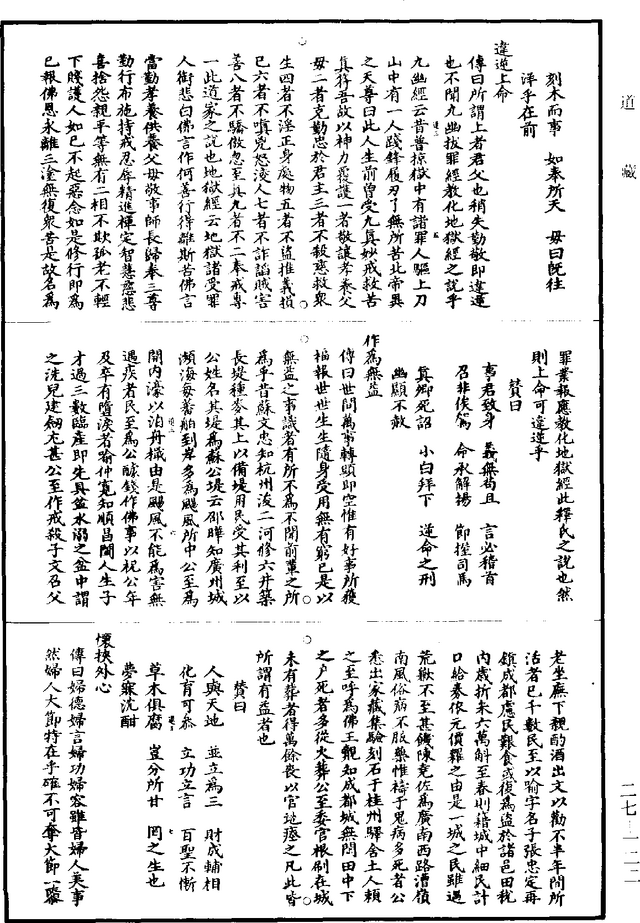 道藏
刻木而事　如奉所天　毋曰旣往
洋乎在前
違逆上命
傳曰所謂上者君父也稍失勤敬即違逆
也不聞九幽拔罪經教化地獄經之說乎
九幽經云昔普掠獄中有諸罪人驅上刀
山中有一人踐鋒履刃了無所苦北帝異
之天尊曰此人生前曾受九真妙戒救苦
真符吾故以神力覆護一者敬讓孝養父
母二者克勤忠於君主三者不殺慈救衆
生四者不淫正身處物五者不盜推義損
己六者不嗔兇怒淩人七者不詐謟賊害
善八者不驕傲忽至真九者不二奉戒專
一此道家之說也地獄經云地獄諸受罪
人銜悲白佛言作何善行得離斯苦佛言
當勤孝養供養父母敬事師長歸奉三尊
勤行布施持戒忍辱精進禪定智慧慈悲
喜捨怨親平等無有二相不欺孤老不輕
下賤護人如己不起惡念如是修行即為
已報佛恩永離三塗無復衆苦是故名為
罪業報應教化地獄經此釋氏之說也然
則上命可違逆乎
贊曰
事君致身　義無苟且　言必稽首
召非俟駕　命承解揚　節挫司馬
真卿死詔　小白拜下　逆命之刑
幽顯不赦
作為無益
傳曰世間萬事轉頭即空惟有好事所獲
福報世世生生隨身受用無有窮已是以
無益之事識者有所不為不聞前輩之所
為乎昔蘇文忠知杭州浚二河修六井築
長堤種荂其上以備堤用民受其利至以
公姓名其堤為蘇公堤云邵曄知廣州城
瀕海每蕃舶到岸多為颶風所中公至為
開內濠以泊舟檝由是颶風不能為害無
遇疾者民至為公醵錢作佛事以祝公年
及卒有墮淚者喻仲寬知順昌閩人生子
才過三數臨產即先具盆水溺之盆中謂
之洗兒建劍尤甚公至作戒殺子文召父
老坐廡下親酌酒出文以勸不半年間所
活者已千數民至以喻字名子張忠定再
鎮成都慮民艱食或復為盜於諸邑田稅
內歲折米六萬斛至春則籍城中細民計
口給劵依元價糶之由是一城之民雖遇
荒歉不至甚饑陳堯佐為廣南西路漕嶺
南風俗病不服藥惟檮于鬼病多死者公
悉出家藏集驗刻石于桂州驛舍土人賴
之至呼為佛王覿知成都城無閑田中下
之戶死者多從火葬公至委官根刷在城
未有葬者得萬餘喪以官地瘞之凡此皆
所謂有益者也
贊曰
人與天地　並立為三　財成輔相
化育可叅　立功立言　百聖不慚
草木俱腐　豈分所甘　罔之生也
夢寐沈酣
懷挾外心
傳曰婦德婦言婦功婦容雖皆婦人美事
然婦人大節特在乎確不可奪大節一虧
二七―一二二